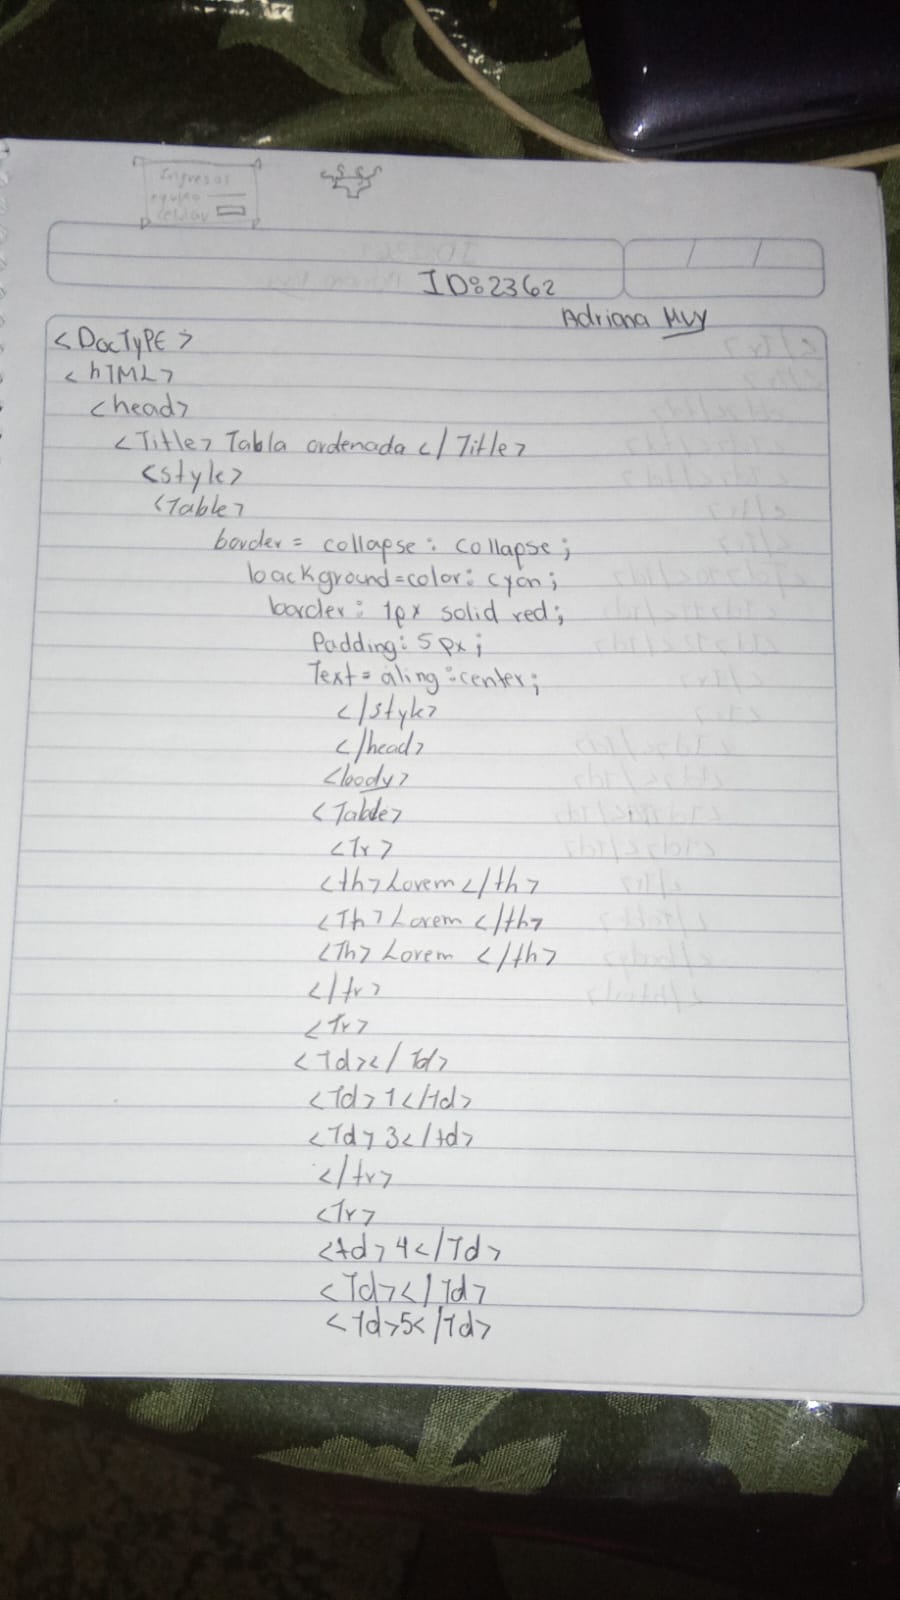 Ingresos
equipo
celular
ID:2362
Adriana
<DocTyPE>
<hTML>
<head>
<Title> Tabla ordenada </Title>
<style>
<Table>
border = collapse : collapse;
background=color: cyan;
border: 1px solid red;
Padding: 5px;
Text = aling :center;
</style>
</head>
<body>
<Table>
<Tr>
<th> Lorem </th>
<Th> Lorem </th>
<Th> Lorem </th>
</tr>
<Tr>
<Td></Td>
<Td>1</td>
<Td>3</td>
</tr>
<Tr>
<td>4</Td>
<Td></Td>
<Td>5</Td>